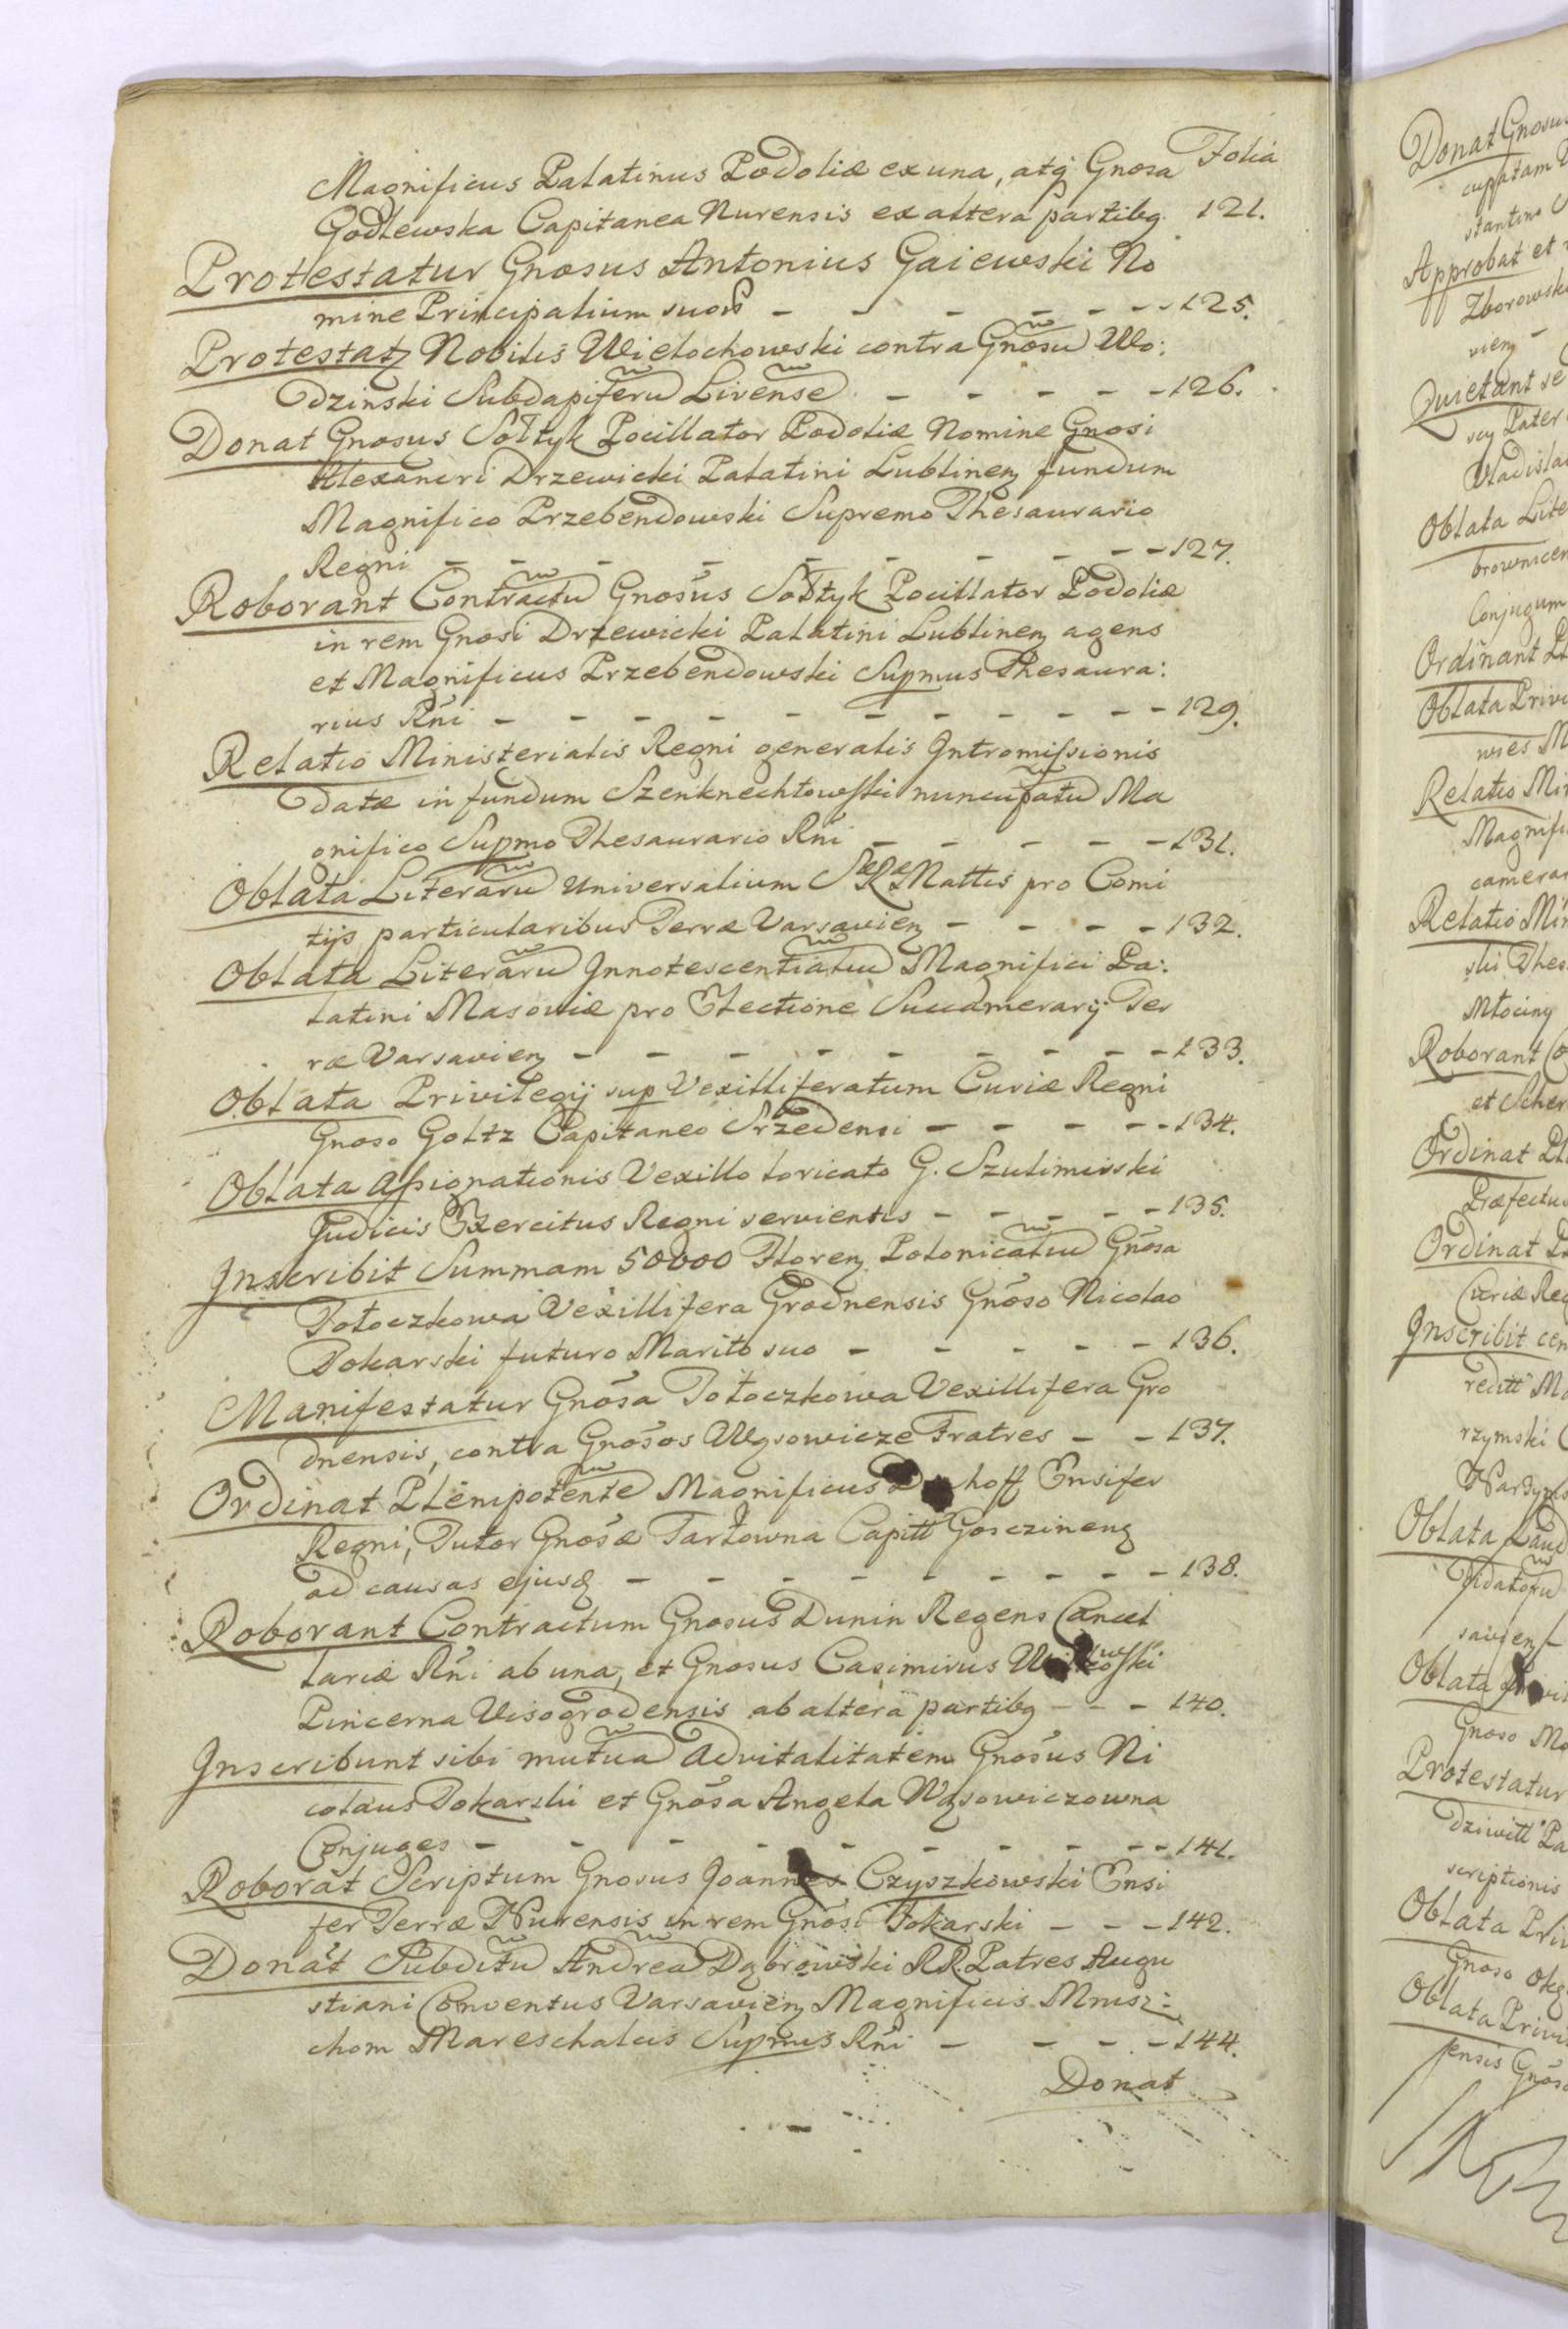 Folia
Magnificus Palatinus Podoliæ ex una, atq Gnosa
Godlewska Capitanea Nurensis ex altera partibq 121.
Protestatur Gnosus Antonius Gaiewski No
mine Principalium suor - - - - - 125.
Protestatz Nobilis Wielochowski contra Gnosũ Wo:
dzinski Subdapiferũ Livensẽ - - - - - 126.
Donat Gnosus Sołtyk Pocillator Podoliæ Nomine Gnosi
Alexandri Drzewicki Palatini Lublinenz fundum
Magnifico Przebendowski Supremo Thesaurario
Regni - - - - - - - - - 127.
Roborant Contractũ Gnosus Sołtyk Pocillator Podoliæ
in rem Gnosi Drzewicki Palatini Lublinenz agens
et Magnificus Przebendowski Supmus Thesaura:
rius Rñi - - - - - - - - - - 129.
Relatio Ministerialis Regni generalis Intromissionis
datæ in fundum Szenknechtowski nuncupatũ Ma
gnifico Supmo Thesaurario Rñi - - - - - 131.
Oblata Literarũ Universalium SæRæMattis pro Comi
tijs particularibus Terræ Varsavienz - - - - 132.
Oblata Literarũ Innotescentiatũ Magnifici Pa:
latini Masoviæ pro Electione Succamerarij Ter
ræ Varsavienz - - - - - - - - 133.
Oblata Privilegij sup Vexilliferatum Curiæ Regni
Gnoso Goltz Capitaneo Srzedensi - - - - - 134.
Oblata Assignationis Vexillo loricato G. Szulimirski
Judicis Exercitus Regni servientis - - - - - 135.
Inscribit Summam 50000 Florenz Polonicaliũ Gnõsa
Potoczkowa Vexillifera Grodnensis Gnõso Nicolao
Tokarski futuro Marito suo - - - - - 136.
Manifestatur Gnõsa Potoczkowa Vexillifera Gro
dnensis, contra Gnõsos Wąsowicze Fratres - - 137.
Ordinat Plenipotentẽ Magnificus hoff Ensifer
Regni, Tutor Gnõsæ Tarłowna Capitt Gosczinenz
ad causas ejusq - - - - - - - - - 138.
Roborant Contractum Gnosus Dunin Regens Cancel
lariæ Rñi ab una, et Gnosus Casimirus
Pincerna Visogrodensis ab altera partibq - - - 140.
Inscribunt sibi mutuã Advitalitatem Gnõsus Ni
colaus Tokarski et Gnõsa Angela Wąsowiczowna
Conjuges - - - - - - - - - 141.
Roborat Scriptum Gnosus Joannes Czyszkowski Ensi
fer Terræ Nurensis in rem Gnõsi Tokarski - - - 142.
Donat Subditũ Andreã Dąbrowski RR. Patres Augu
stiani Conventus Varsavienz Magnificis Mnisz:
chom Mareschalcis Supmus Rñi - - - - 144.
Donat
Donat Gnosus
stantino
Approbat et
Zborowski
vienz
Quietant se
Pater
Vladisla
Oblata Lite
Conjugum
Ordinant Pl
Oblata Privi
Relatio Min
Magnifi
camerar
Relatio Min
ski Thes
Młociny
Roborant Co
et Scher
Ordinat Pl
Præfectus
Ordinat Pl
Curiæ Reg
Inscribit cen
rzymski
Oblata Laud
Oblata
Gnoso Mo
Protestatur
scriptionis
Oblata Priv
Gnoso Okę
Oblata Privi